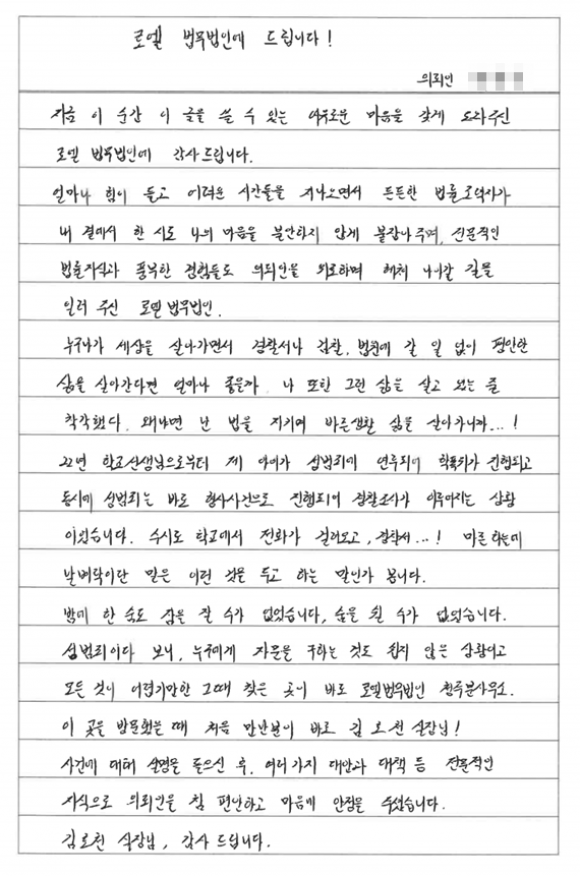 로엘 법무법인에 드립니다!
의뢰인
지금 이 순간 이 글을 쓸 수 있는 여유로운 마음을 갖게 도와주신
로엘 법무법인에 감사드립니다.
얼마나 힘이 들고 어려운 시간들을 지나오면서 든든한 법률조력자가
내 곁에서 한 시도 나의 마음을 불안하지 않게 붙잡아주며, 전문적인
법률지식과 풍복한 경험들로 의뢰인을 위로하며 헤쳐 나아갈 길을
일러 주신 로엘 법무법인.
누구나가 세상을 살아가면서 경찰서나 검찰, 법원에 갈 일 없이 평안한
삶을 살아간다면 얼마나 좋을까. 나 또한 그런 삶을 살고 있는 줄
착각했다. 왜냐면 난 법을 지키며 바른생활 삶을 살아가니까...!
22년 학교선생님으로부터 제 아이가 성범죄에 연루되어 학폭위가 진행되고
동시에 성범죄는 바로 형사사건으로 진행되어 경찰조사가 이루어지는 상황
이었습니다. 수시로 학교에서 전화가 걸려오고, 경찰서...! 마른 하늘에
날벼락이란 말은 이런 것을 두고 하는 말인가 봅니다.
밤에 한 숨도 잠을 잘 수가 없었습니다, 숨을 쉴 수가 없었습니다.
성범죄이다 보니, 누구에게 자문을 구하는 것도 쉽지 않은 상황이고
모든 것이 어렵기만한 그때 찾은 곳이 바로 로엘법무법인 청주분사무소.
이 곳을 방문했을 때 처음 만난분이 바로 김 실장님!
사건에 대해 설명을 들으신 후, 여러가지 대안과 대책 등 전문적인
지식으로 의뢰인을 참 편안하고 마음에 안정을 주셨습니다.
김 실장님, 감사 드립니다.